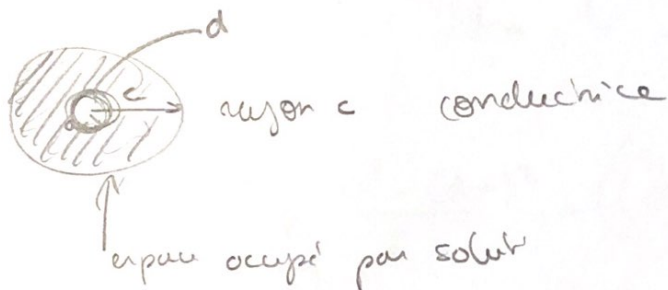 d
c
rayon c conductrice
espace occupé par solut